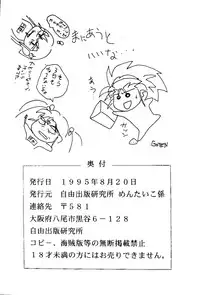 まにあうと
いいな…
奥付
発行日　1995年8月20日
発行元　自由出版研究所 めんたいこ係
連絡先　〒581
大阪府八尾市黒谷6－128
自由出版研究所
コピー、海賊版等の無断掲載禁止
18才未満の方にはお売りできません。